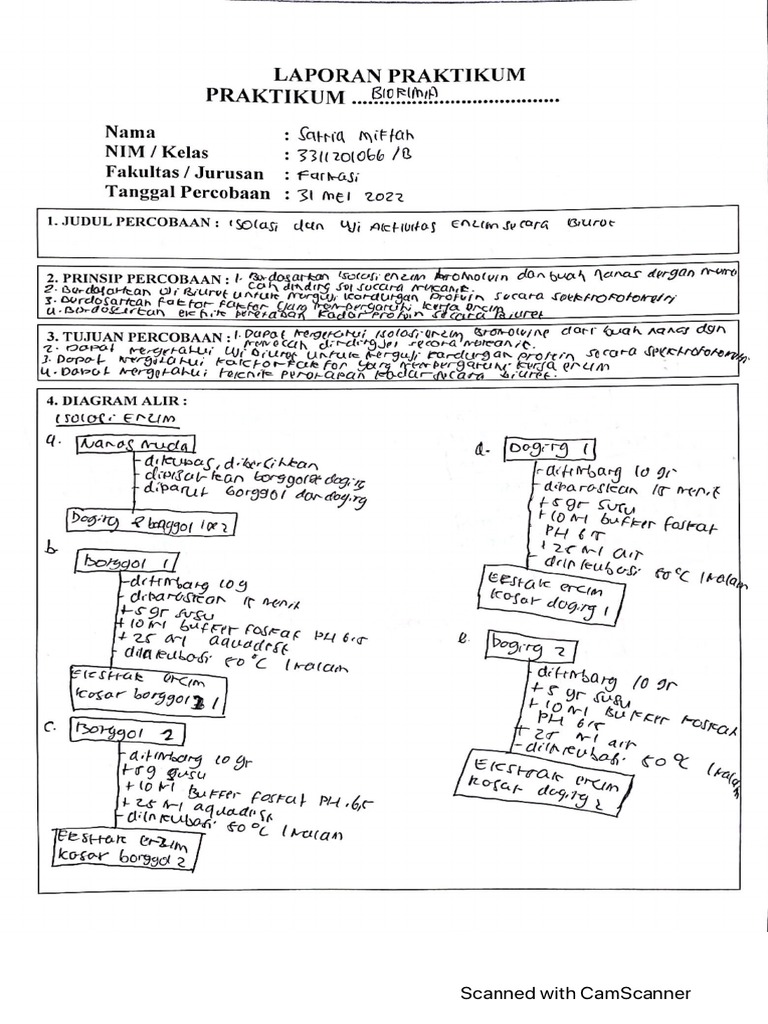 LAPORAN PRAKTIKUM
PRAKTIKUM ...BIOKIMIA...
Nama : Satria Miftah
NIM / Kelas : 3311201066 /B
Fakultas / Jurusan : Farmasi
Tanggal Percobaan : 31 MEI 2022
1. JUDUL PERCOBAAN : Isolasi dan Uji Aktivitas Enzim secara Biuret
2. PRINSIP PERCOBAAN : 1. Berdasarkan isolasi enzim bromolvin dan buah nanas dengan
cah dinding sel secara mekanik.
2. Berdasarkan Uji Biuret untuk menguji kandungan protein secara spektrofotometri
3. Berdasarkan faktor faktor yang mempengaruhi kerja enzim
4. Berdasarkan teknik penetapan kadar protein secara biuret
3. TUJUAN PERCOBAAN : 1. Dapat mengetahui isolasi enzim Bromoline dari buah nanas dan
memecah dinding sel secara mekanik.
2. Dapat mengetahui Uji Biuret untuk menguji kandungan protein secara spektrofotometri.
3. Dapat mengetahui faktor faktor yang mempengaruhi kerja enzim
4. Dapat mengetahui teknik penetapan kadar secara biuret.
4. DIAGRAM ALIR :
Isolasi Enzim
a. Nanas muda
- dikupas, dibersihkan
- dipisahkan bonggol & daging
- diparut bonggol dan daging
Daging & bonggol 1 & 2
b. Bonggol 1
- ditimbang 10 g
- dipanaskan 15 menit
+ 5 gr susu
+ 10 ml buffer fosfat PH 6,5
+ 25 ml aquadest
- diinkubasi 50°C 1 malam
Ekstrak enzim
kasar bonggol 1
c. Bonggol 2
- ditimbang 10 gr
+ 5 g susu
+ 10 ml Buffer fosfat PH. 6,5
+ 25 ml aquadest
- diinkubasi 50°C 1 malam
Ekstrak enzim
kasar bonggol 2
d. Daging 1
- ditimbang 10 gr
- dipanaskan 15 menit
+ 5 gr susu
+ 10 ml buffer fosfat
PH 6,5
+ 25 ml air
- diinkubasi 50°C 1 malam
Ekstrak enzim
kasar daging 1
e. Daging 2
- ditimbang 10 gr
+ 5 gr susu
+ 10 ml Buffer fosfat
PH 6,5
+ 25 ml air
- diinkubasi 50°C 1 malam
Ekstrak enzim
kasar daging 2
Scanned with CamScanner